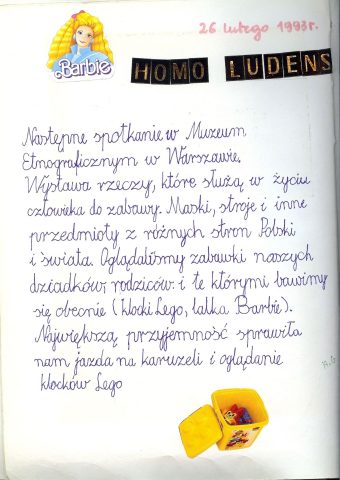 26 lutego 1993r.
Barbie
HOMO LUDENS
Następne spotkanie w Muzeum
Etnograficznym w Warszawie.
Wystawa rzeczy, które służą w życiu
człowieka do zabawy. Maski, stroje i inne
przedmioty z różnych stron Polski
i świata. Oglądaliśmy zabawki naszych
dziadków, rodziców i te którymi bawimy
się obecnie (klocki Lego, lalka Barbie).
Największą przyjemność sprawiła
nam jazda na karuzeli i oglądanie
klocków Lego